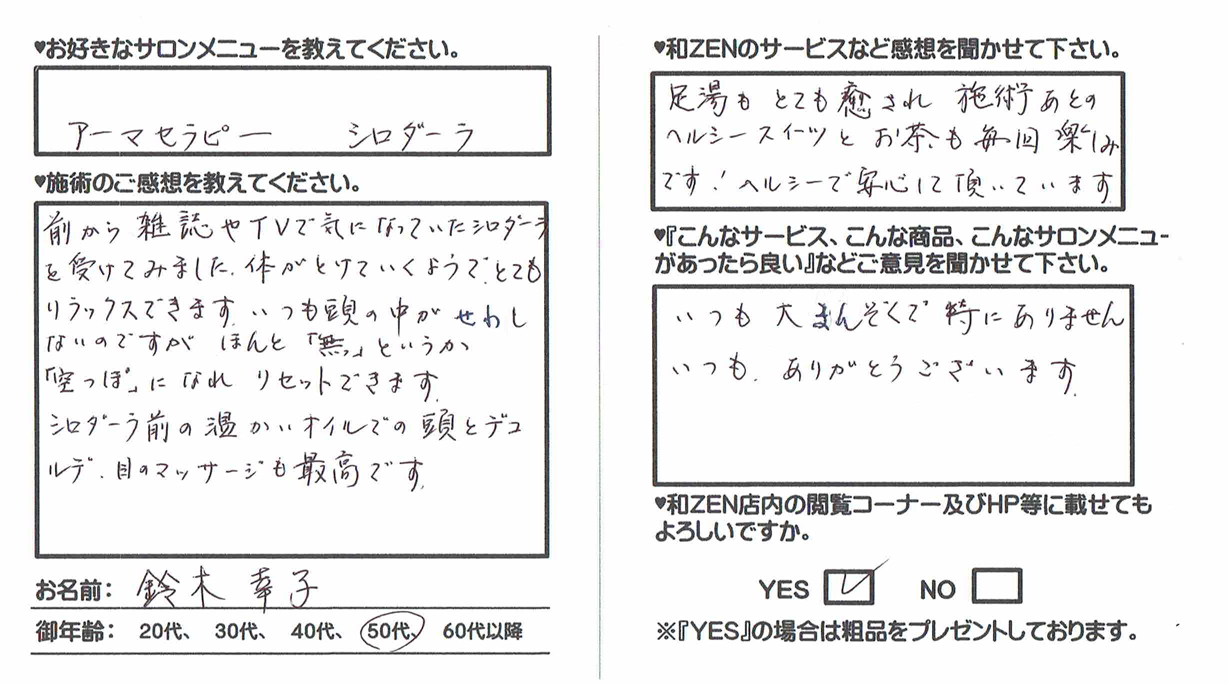 ♥お好きなサロンメニューを教えてください。
アーマセラピー シロダーラ
♥施術のご感想を教えてください。
前から雑誌やTVで気になっていたシロダーラ
を受けてみました。体がとけていくようで、とても
リラックスできます。いつも頭の中がせわし
ないのですが ほんと「無」というか
「空っぽ」になれ リセットできます。
シロダーラ前の温かいオイルでの頭とデコ
ルテ、目のマッサージも最高です。
お名前: 鈴木 幸子
御年齢: 20代、 30代、 40代、 50代、 60代以降
♥和ZENのサービスなど感想を聞かせて下さい。
足湯もとても癒され 施術あとの
ヘルシースイーツとお茶も毎回楽しみ
です! ヘルシーで安心して頂いています
♥『こんなサービス、こんな商品、こんなサロンメニュー
があったら良い』などご意見を聞かせて下さい。
いつも大まんぞくで特にありません
いつも、ありがとうございます。
♥和ZEN店内の閲覧コーナー及びHP等に載せても
よろしいですか。
YES ☑ NO □
※『YES』の場合は粗品をプレゼントしております。